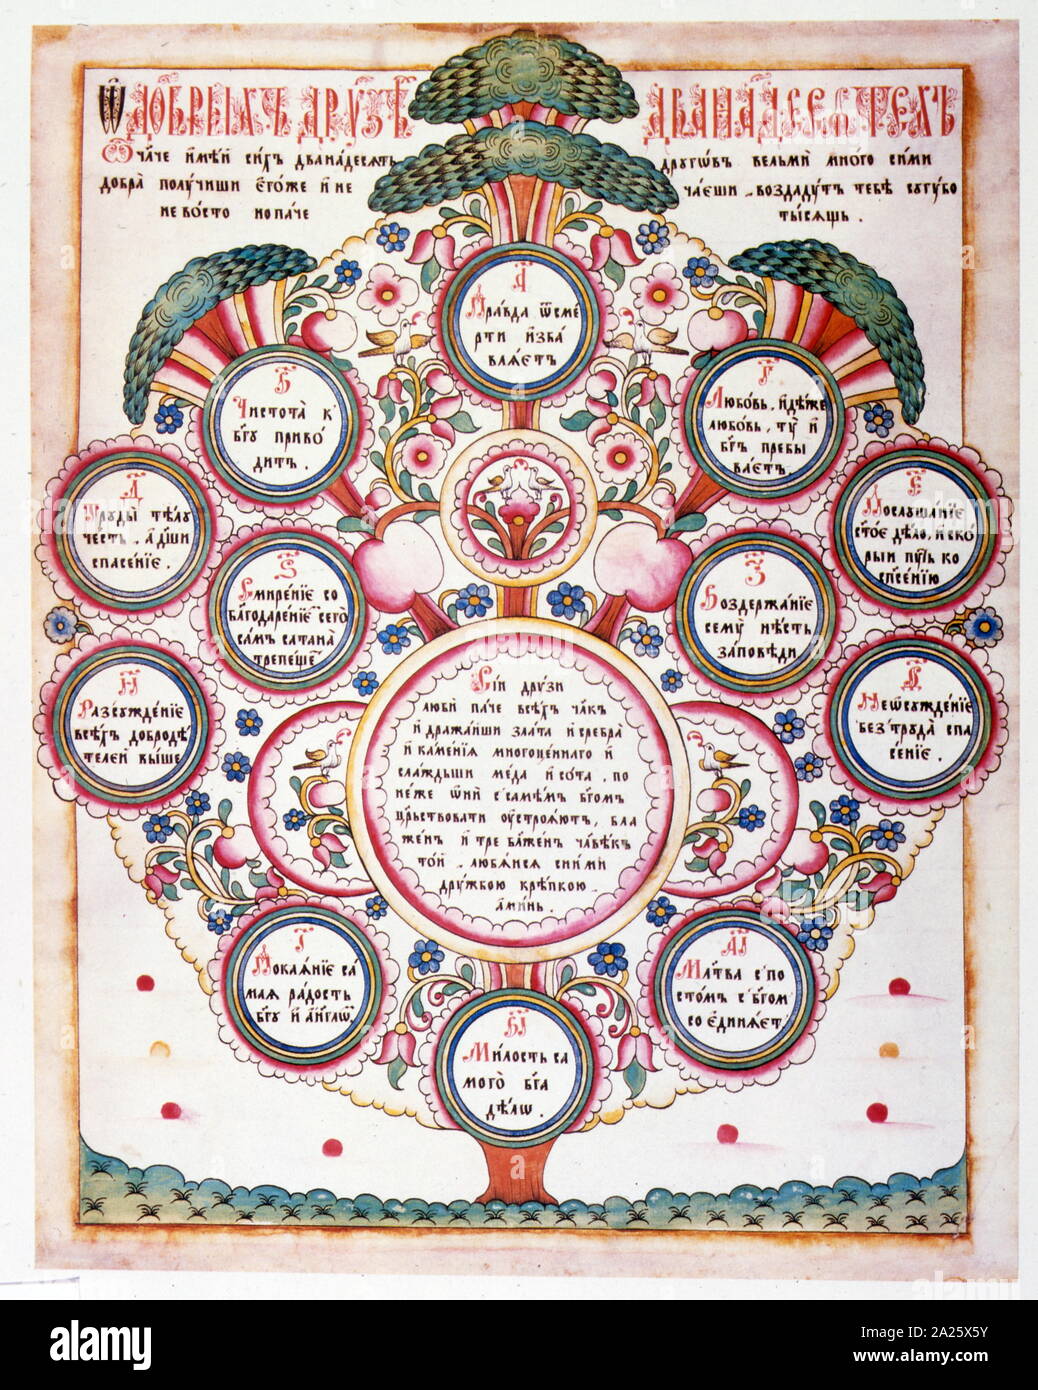 Ѿ ДОБРЫХЪ ДРУЗѢ ДВАНАДЕСЯТЕХЪ
Ѽ чл҃че имѣй сихъ дванадесять другѡвъ вельми много сими
добра получиши егоже и не чаеши воздадутъ тебѣ сугубо
не во сто но паче тысящь .
А҃
Правда ѿ сме
рти изба
вляетъ
Б҃
Чистота к
бг҃у приво
дитъ .
Г҃
Любовь . идѣже
любовь , ту и
бг҃ъ пребы
ваетъ
Д҃
Труды тѣлу
честь . а дш҃и
спасение .
Е҃
Послушание
стое дѣло , и ско
рыи путь ко
сп҃сению
Ѕ҃
Смирение со
благодарение сего
самъ сатана
трепеще
З҃
Воздержание
сему нѣсть
заповѣди
И҃
Разсуждение
всѣхъ добродѣ
телей выше
Ѳ҃
Неѡсуждение
без труда спа
сение .
Сіи друзи
люби паче всѣхъ чл҃къ
и дражаиши злата и сребра
и камения многоценнаго и
слаждьши меда и сота . по
неже ѡни с самѣмъ бг҃омъ
цр҃ьствовати устрояютъ , бла
женъ и треблаженъ чл҃вѣкъ
той . любаяся сними
дружбою крѣпкою .
аминь .
І҃
Покаяние са
мая радость
бг҃у и аггл҃ѡ
АІ҃
Мл҃тва с по
стомъ с бг҃ом
соединяетъ
ВІ҃
Милость са
мого бг҃а
дѣло .
alamy
Image ID: 2A25X5Y
www.alamy.com